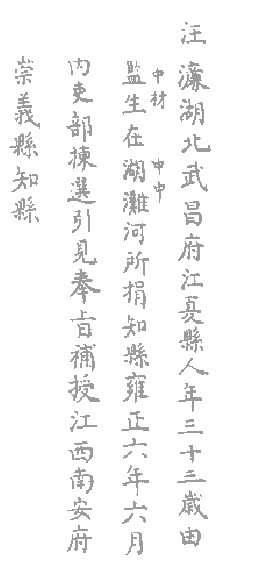 汪濂湖北武昌府江夏縣人年三十三歲由
中材　中中
監生在湖灘河所捐知縣雍正六年六月
內吏部揀選引見奉旨補授江西南安府
崇義縣知縣